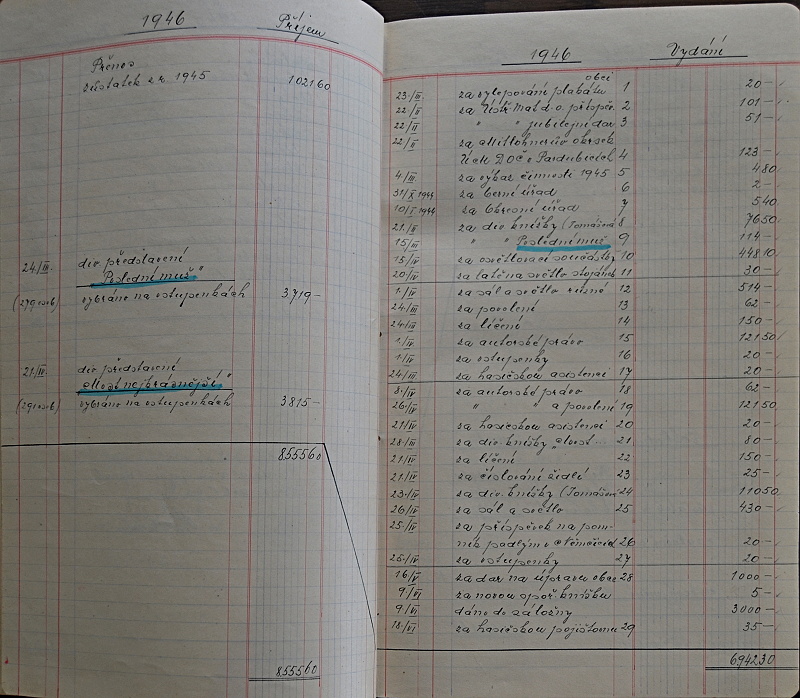 1946
Příjem
Přenos
zůstatek z r. 1945 102160
24./III. div. představení
"Poslední muž"
(279 osob) vybráno na vstupenkách 3719-
21./IV. div. představení
"Most nejkrásnější"
(291 osob) vybráno na vstupenkách 3815-
855560
855560
1946
Vydání
obci
23./III za vylepování plakátů 1 20-
22./II za Ústř. Mat. d. o. příspěv. 2 101-
22/II " " jubilejní dar 3 51-
22/II za okrsek
Úch DOČ v Pardubicích 4 123-
4/III za výkaz činnosti 1945 5 480
31/X 1944 za Berní úřad 6 2-
10/I 1944 za Okresní úřad 7 540
21./II za div. knížky (Tomášová 8 7650
15/III " " Poslední muž 9 114-
15/IV za osvětlovací součástky 10 44810
20/IV za latě na světlo stojánek 11 30-
1./IV za sál a světlo různé 12 514-
24./III za povolení 13 62-
24./IV za líčení 14 150-
1/IV za autorské právo 15 12150
1/IV za vstupenky 16 20-
24/III za hasičskou asistenci 17 20-
8./IV za autorské právo 18 62-
26/IV " " a povolení 19 12150
21/IV za hasičskou asistenci 20 20-
28/III za div. knížky "Most" 21 80-
21/IV za líčení 22 150-
21/IV za číslování židlí 23 25-
23/IV za div. knížky (Tomášová 24 11050
26/IV za sál a světlo 25 430-
25/IV za příspěvek na pom-
ník padlým v Němčicích 26 20-
25./IV za vstupenky 27 20-
16/V za dar na úpravu obce 28 1000-
9/VI za novou spoř. knížku 5-
9/VI dáno do záložny 3000-
18./VI za hasičskou pojistovnu 29 35-
694230